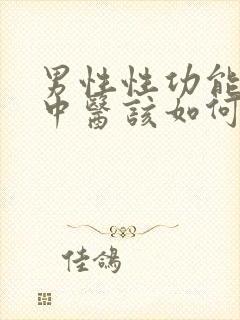 男性性功能
中醫該如何
佳鴿